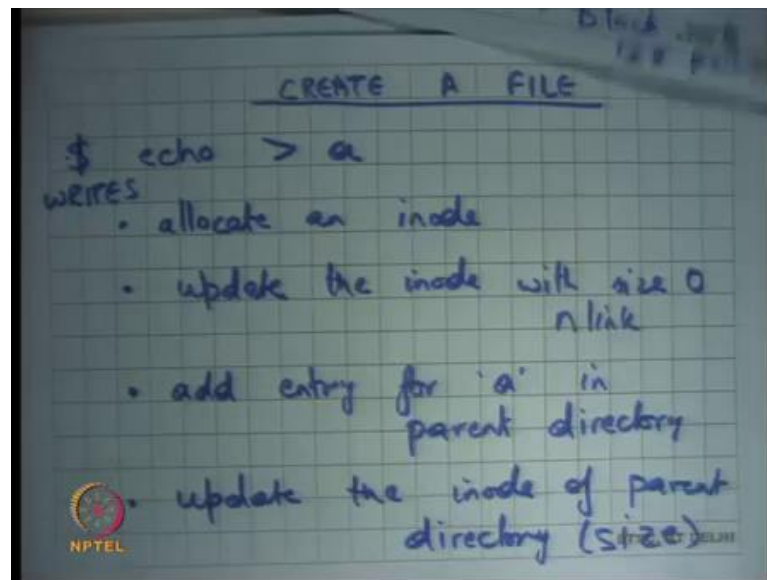 Block
CREATE A FILE
$ echo > a
WRITES
• allocate an inode
• update the inode with size 0
nlink
• add entry for 'a' in
parent directory
• update the inode of parent
directory (size)
NPTEL